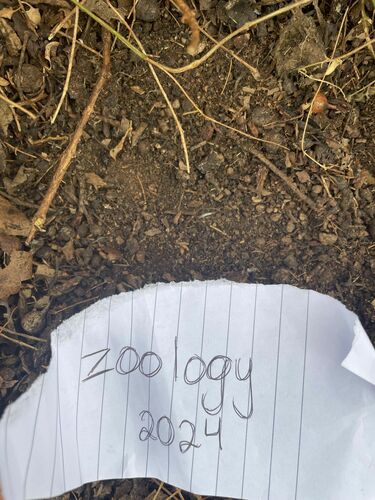 zoology
2024